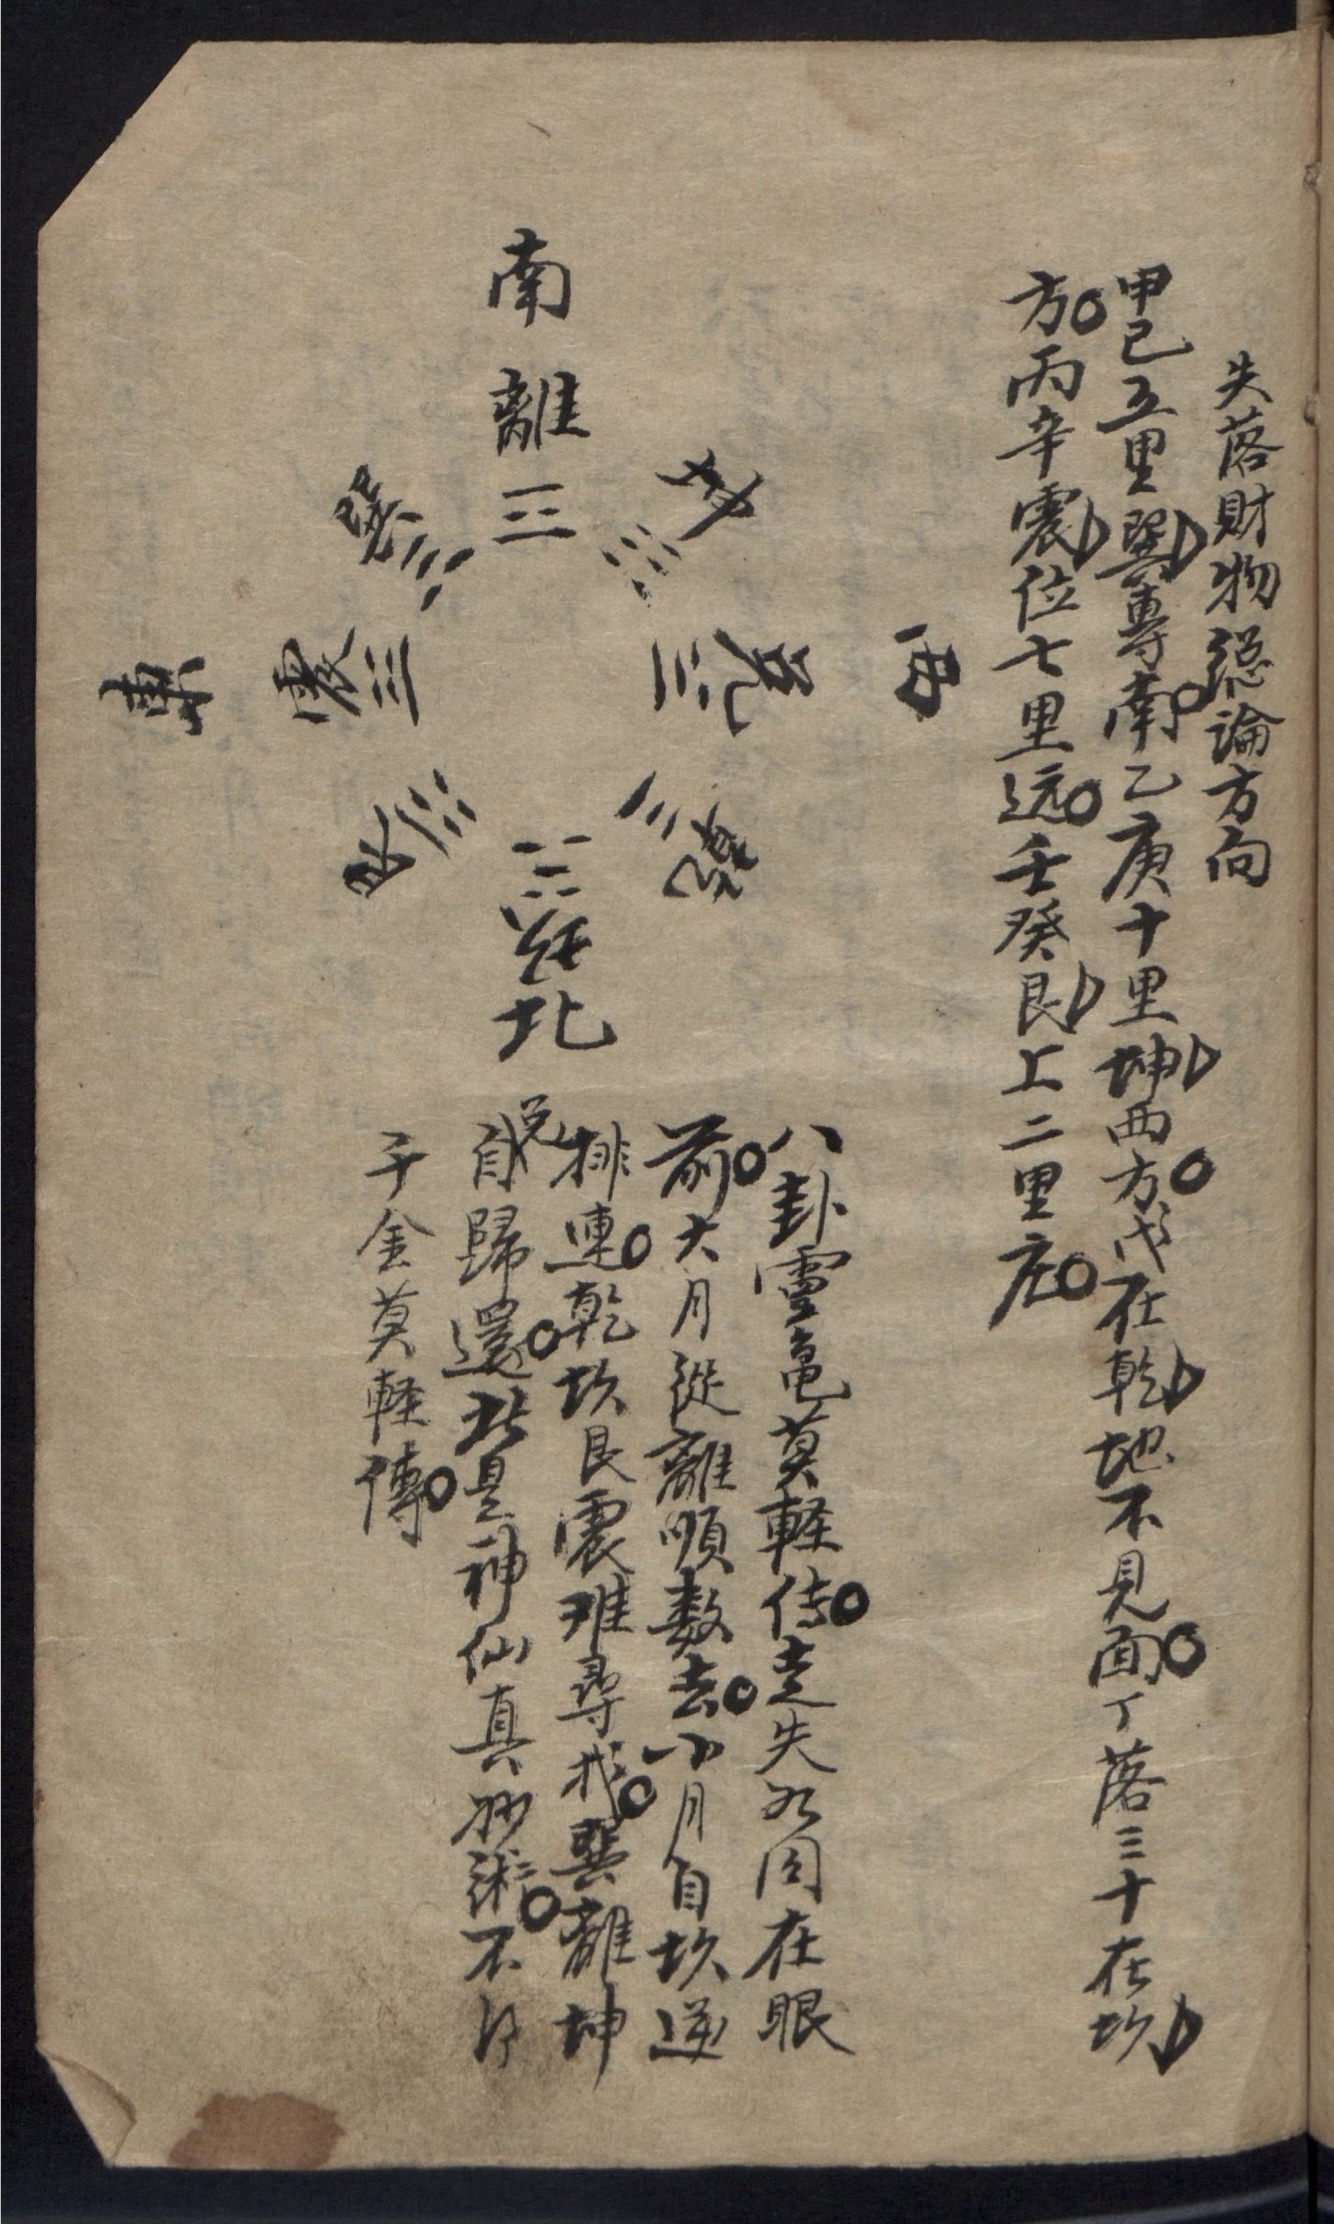 失落財物總論方向
甲己五里巽專南乙庚十里坤西方戊在乾地不見面丁落三十在坎
方丙辛震位七里远壬癸艮上二里庄
南
離
巽
坤
東
震
兌
西
艮
乾
坎
北
八卦靈龜莫輕传走失如同在眼
前大月從離順數去小月自坎逆
排連乾坎艮震难尋找巽離坤
兌自歸還此是神仙真妙術不得
千金莫軽傳